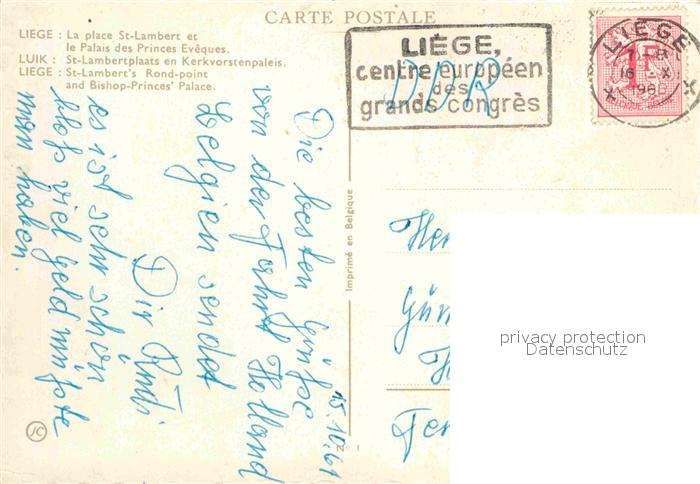 CARTE POSTALE
LIEGE : La place St-Lambert et
le Palais des Princes Evêques.
LUIK : St-Lambertplaats en Kerkvorstenpaleis.
LIEGE : St-Lambert's Rond-point
and Bishop-Princes' Palace.
LIÉGE,
centre européen
des
grands congrès
DDR
LIEGE
15.10.61
Die besten Grüße
von der Fahrt Holland
Belgien sendet
Dir Rudi
es ist sehr schön
bloß viel Geld müßte
man haben.
Imprimé en Belgique
JC
privacy protection
Datenschutz